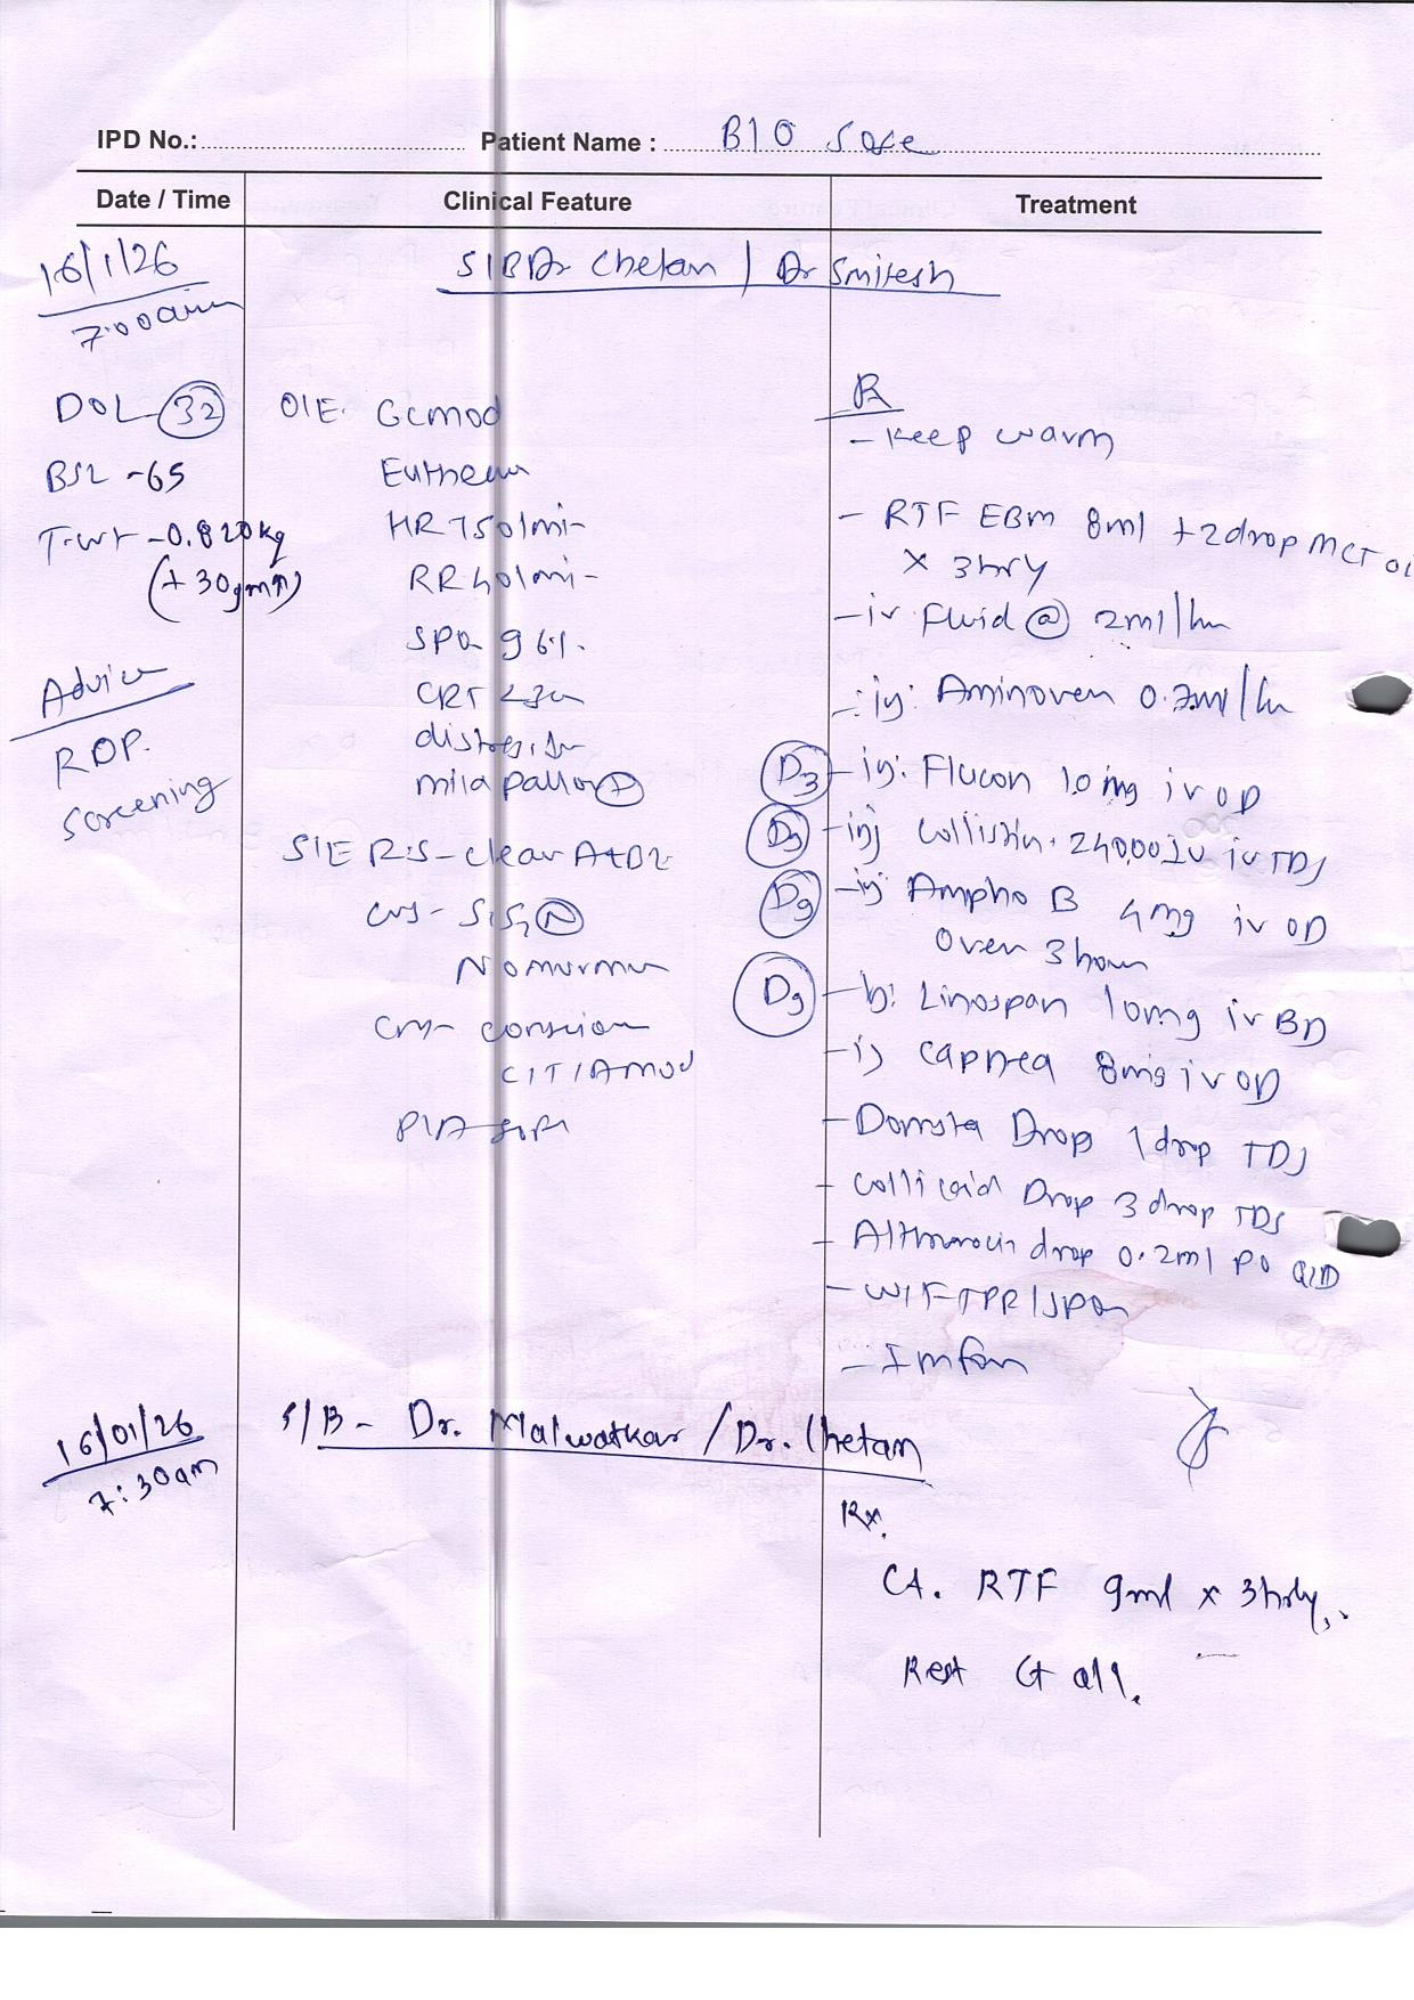 IPD No.: Patient Name : B/O Sare
Date / Time Clinical Feature Treatment
16/1/26 S/B Dr Chetan / Dr Smitesh
7:00am
DOL 32
BSL -65
T.wt -0.820kg
(+30gm↑)
Advice
ROP.
screening
O/E. GCmod
HR 150/min
RR 40/min
SPO2 96%.
CRT <3
mild pallor +
S/E RS - clear
CVS - S1S2 N
No murmur
CNS - conscious
C/T/A mod
P/A soft
R
- Keep warm
- RTF EBM 8ml + 2 drop MCT oi
x 3hrly
- iv Fluid @ 2ml/hr
- inj: Aminoven 0.7ml/hr
D3 - inj: Flucon 10mg iv OD
- inj Collistin. 24000 IU iv TDS
D9 - inj Ampho B 4mg iv OD
over 3 hour
D9 - inj: Linospan 10mg iv BD
- inj capnea 8mg iv OD
- Domsta Drop 1 drop TDS
- Collicaid Drop 3 drop TDS
- Althrocin drop 0.2ml PO QID
- W/F TPR/SPO2
- Inform
16/01/26 S/B - Dr. Malwatkar / Dr. Chetan
7:30am
Rx.
CA. RTF 9ml x 3hrly,
Rest Ct all.